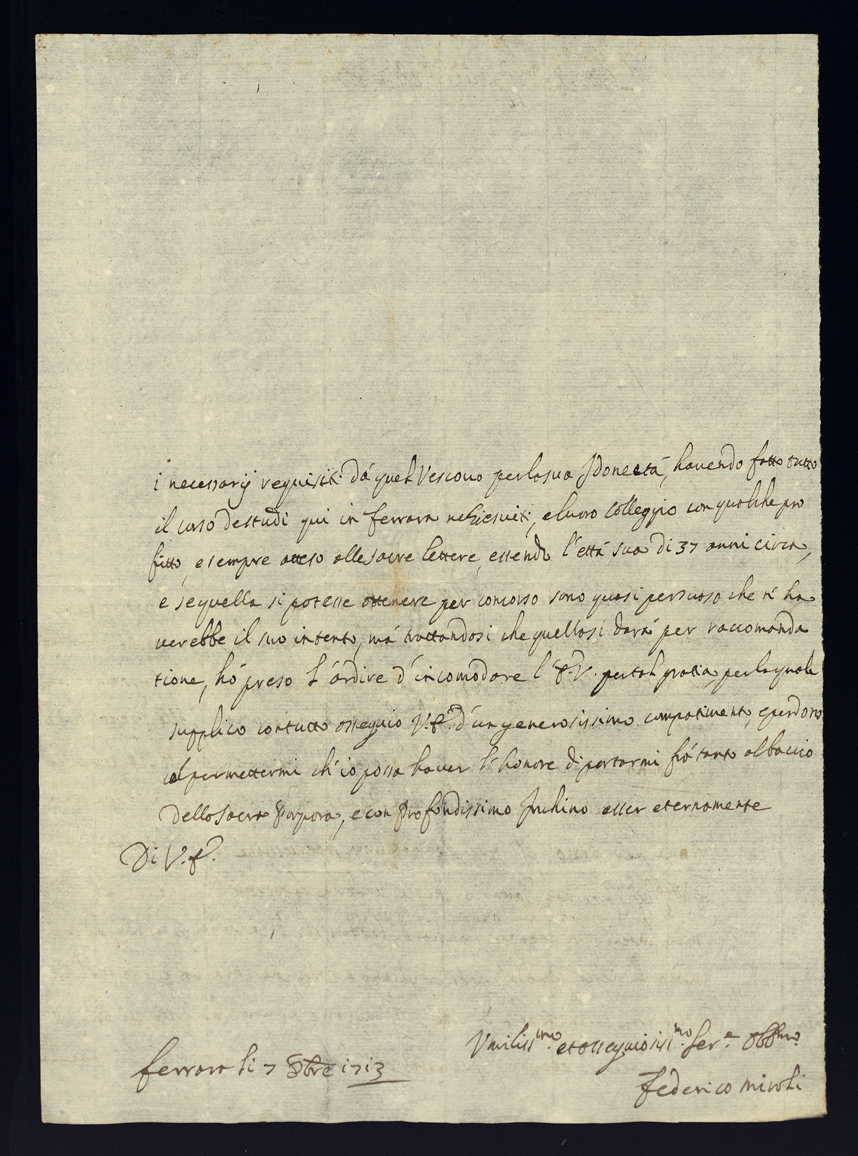 i necessarij requisiti da quel Vescouo per la sua Idoneità, hauendo fatto tutto
il corso de studi qui in Ferrara ne Giesuiti, e loro Colleggio con qualche pro
fitto, e sempre atteso alle sacre lettere, essendo l'età sua di 37 anni circa,
e se quella si potesse ottenere per concorso sono quasi persuaso che n' ha
uerebbe il suo intento, mà trattandosi che quella si darà per raccomanda
tione, hò preso l'ardire d'incomodare l' per tal gratia, per la quale
supplico con tutto ossequio V. d'un generosissimo compatimento, e perdono
al permettermi ch'io possa hauer l'honore di portarmi frà tanto al baccio
della sacra Porpora, e con profondissimo Inchino esser eternamente
Di V.
Ferrara li 7 8bre 1713
Vmiliss.mo et ossequiosiss.mo Ser.e Obb.mo
Federico Miroli